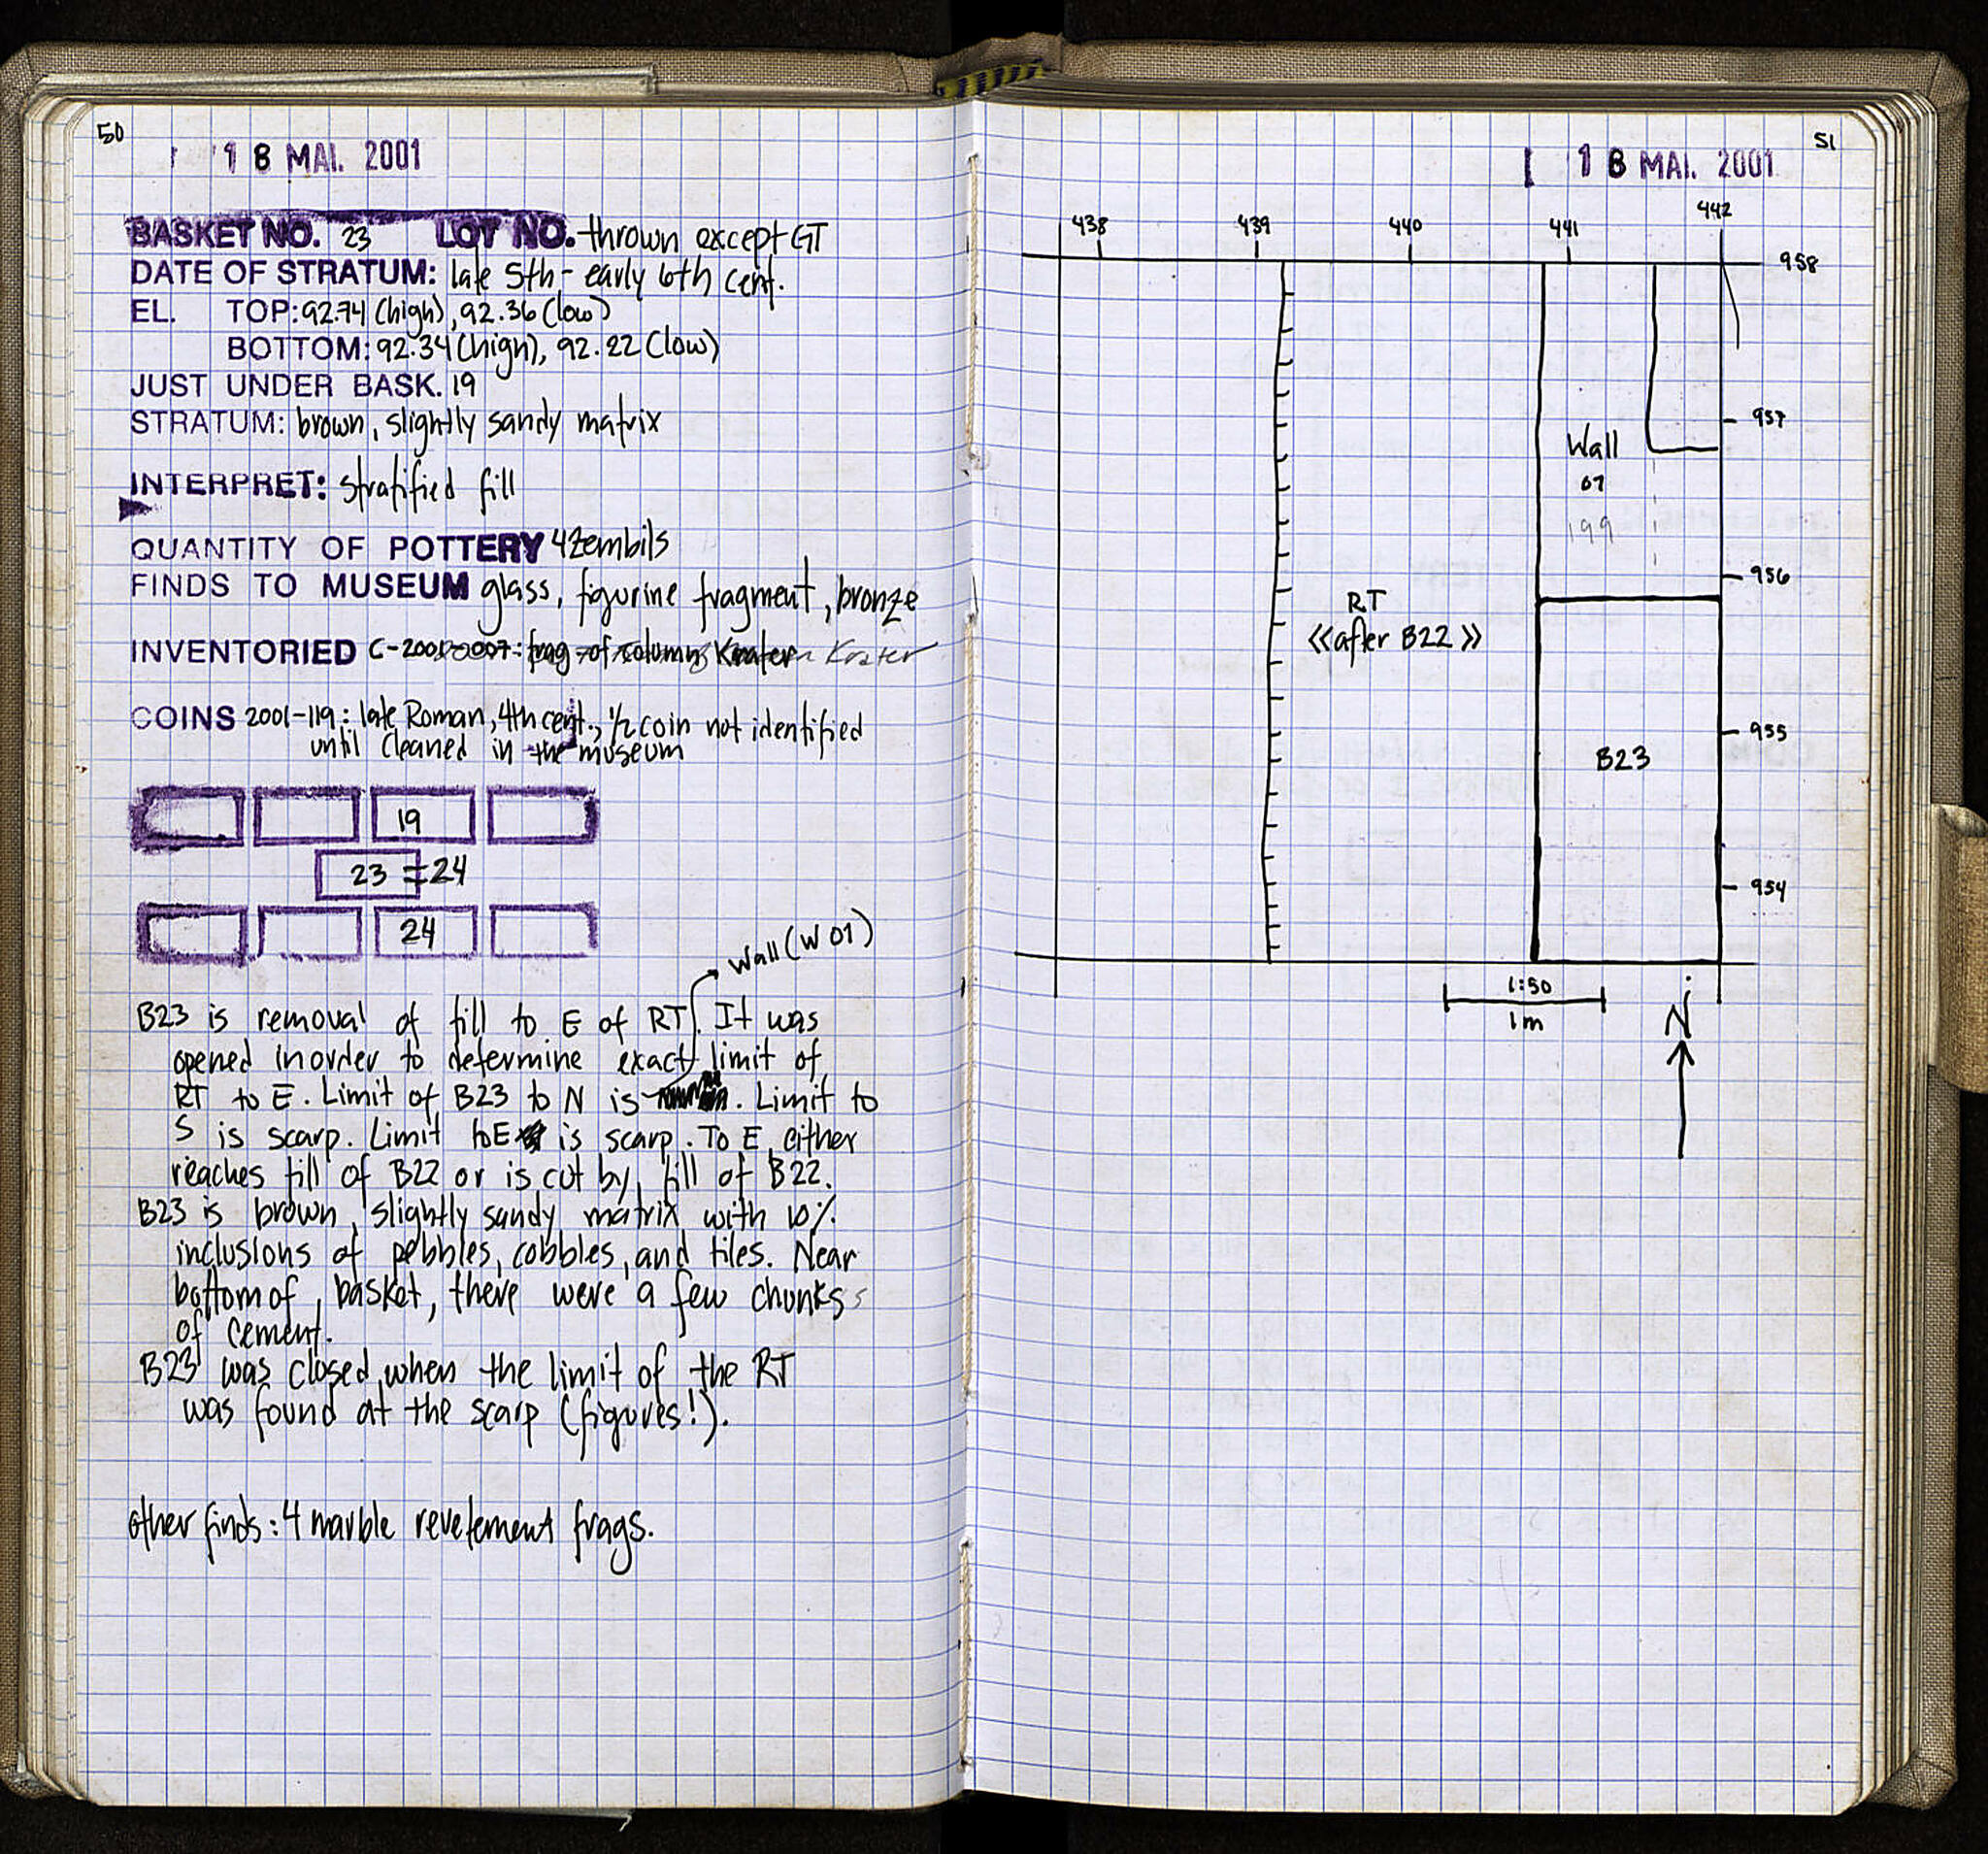 50
18 MAI. 2001
BASKET NO. 23 LOT NO. thrown except GT
DATE OF STRATUM: late 5th - early 6th cent.
EL. TOP: 92.74 (high), 92.36 (low)
BOTTOM: 92.34 (high), 92.22 (low)
JUST UNDER BASK. 19
STRATUM: brown, slightly sandy matrix
INTERPRET: stratified fill
QUANTITY OF POTTERY 4 zembils
FINDS TO MUSEUM glass, figurine fragment, bronze
INVENTORIED C-2001-007: frag of column Krater Krater
COINS 2001-119: late Roman, 4th cent., 1/2 coin not identified
until cleaned in the museum
19
23 = 24
24
Wall (W01)
B23 is removal of fill to E of RT. It was
opened inorder to determine exact limit of
RT to E. Limit of B23 to N is . Limit to
S is scarp. Limit to E is scarp. To E either
reaches fill of B22 or is cut by fill of B22.
B23 is brown, slightly sandy matrix with 10%
inclusions of pebbles, cobbles, and tiles. Near
bottom of basket, there were a few chunks
of cement.
B23 was closed when the limit of the RT
was found at the scarp (figures!).
other finds: 4 marble revetement frags.
51
18 MAI. 2001
438 439 440 441 442
958
957
Wall
01
199
956
RT
<<after B22>>
955
B23
954
1:50
1m
N